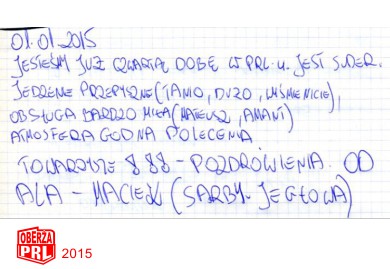 01.01.2015
JESTEŚMY JUŻ CZWARTĄ DOBĘ W PRL-u. JEST SUPER.
JEDZENIE PRZEPYSZNE (TANIO, DUŻO, WYŚMIENICIE),
OBSŁUGA BARDZO MIŁA (MATEUSZ, AMANT)
ATMOSFERA GODNA POLECENIA
TOWARZYSZE 888 - POZDROWIENIA OD
ALA - MACIEJ (SARBY- JEGŁOWA)
OBERŻA
PRL 2015